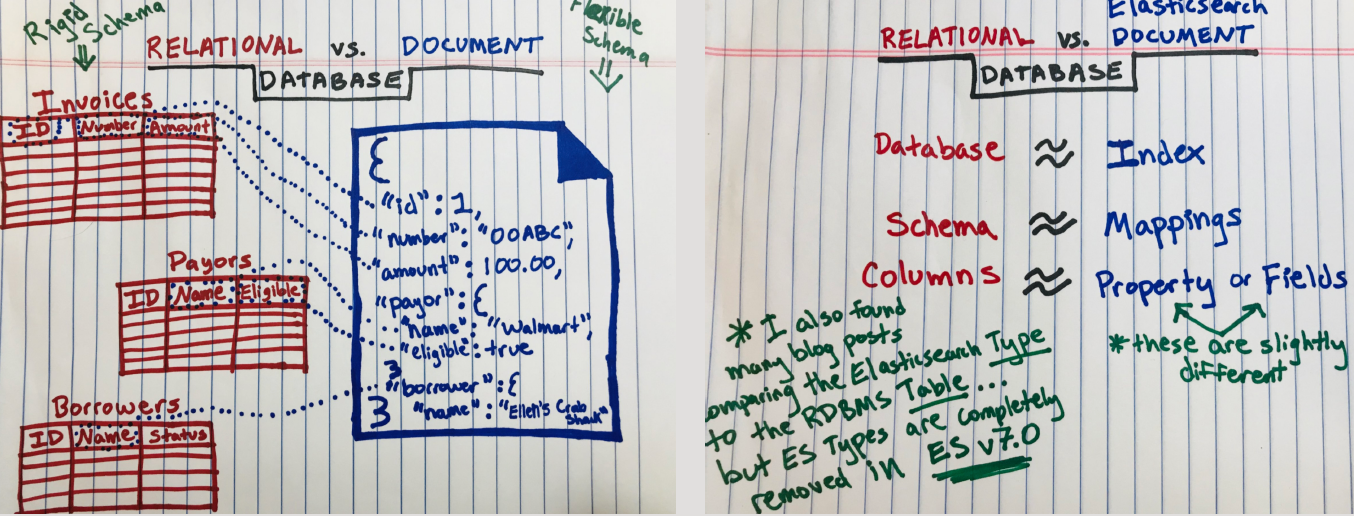 Rigid
Schema
RELATIONAL vs. DOCUMENT
DATABASE
Flexible
Schema
Invoices
ID Number Amount
Payors
ID Name Eligible
Borrowers
ID Name Status
{
"id": 1,
"number": "00ABC",
"amount": 100.00,
"payor": {
"name": "Walmart",
"eligible": true
}
"borrower": {
"name": "Ellen's Crab
Shack"
}
Elasticsearch
RELATIONAL vs. DOCUMENT
DATABASE
Database ≈ Index
Schema ≈ Mappings
Columns ≈ Property or Fields
* these are slightly
different
* I also found
many blog posts
comparing the Elasticsearch Type
to the RDBMS Table ...
but ES Types are completely
removed in ES v7.0